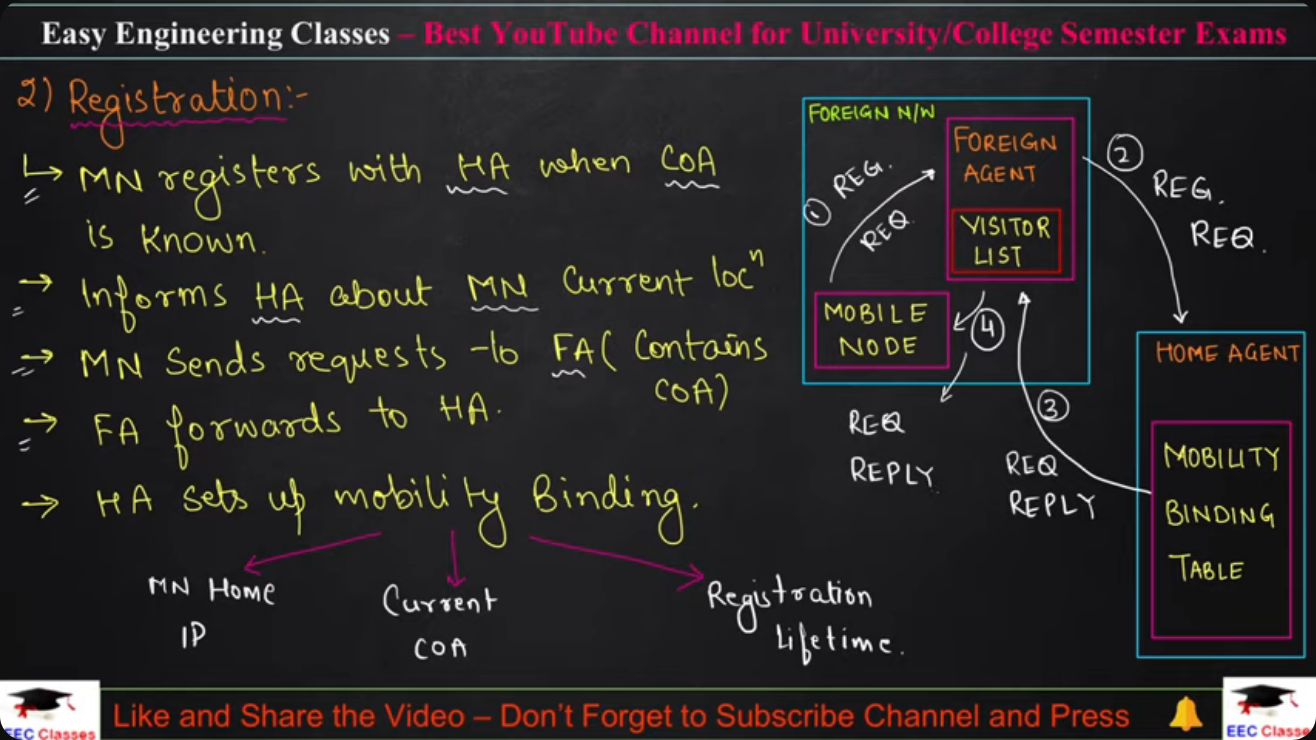 Easy Engineering Classes – Best YouTube Channel for University/College Semester Exams
2) Registration:-
↳ MN registers with HA when COA
is known.
→ Informs HA about MN Current locⁿ
→ MN Sends requests to FA (Contains
COA)
→ FA forwards to HA.
→ HA sets up mobility Binding.
MN Home
IP
Current
COA
Registration
Lifetime.
FOREIGN N/W
FOREIGN
AGENT
VISITOR
LIST
MOBILE
NODE
① REG.
REQ.
② REG.
REQ.
④
REQ
REPLY
③
REQ
REPLY
HOME AGENT
MOBILITY
BINDING
TABLE
EEC Classes
Like and Share the Video – Don't Forget to Subscribe Channel and Press
EEC Classe